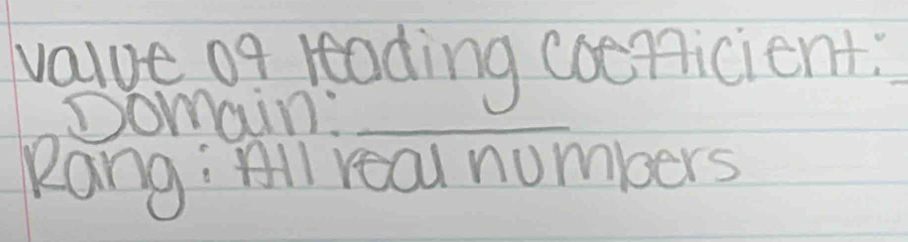 value of leading coefficient: _
Domain: ______
Rang: All real numbers